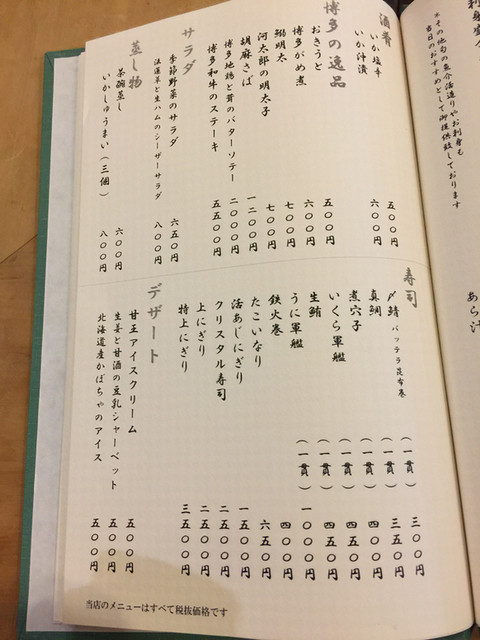 ※その他旬の魚介活造りやお刺身も
当日のおすすめとして御提供致しております
あら汁
酒肴
いか塩辛 五〇〇円
いか汁漬 六〇〇円
博多の逸品
おきうと 五〇〇円
博多がめ煮 六〇〇円
鰯明太 七〇〇円
河太郎の明太子 七〇〇円
胡麻さば 一二〇〇円
博多地鶏と茸のバターソテー 二〇〇〇円
博多和牛のステーキ 五五〇〇円
サラダ
季節野菜のサラダ 六五〇円
法蓮草と生ハムのシーザーサラダ 八〇〇円
蒸し物
茶碗蒸し 六〇〇円
いかしゅうまい（三個） 八〇〇円
寿司
〆鯖 バッテラ昆布巻 （一貫） 三〇〇円
真鯛 （一貫） 三五〇円
煮穴子 （一貫） 四〇〇円
いくら軍艦 （一貫） 四五〇円
生鮪 （一貫） 四五〇円
うに軍艦 （一貫） 一〇〇〇円
鉄火巻 四〇〇円
たこいなり 六五〇円
活あじにぎり 一五〇〇円
クリスタル寿司 二五〇〇円
上にぎり 二五〇〇円
特上にぎり 三五〇〇円
デザート
甘王アイスクリーム 五〇〇円
生姜と甘酒の豆乳シャーベット 五〇〇円
北海道産かぼちゃのアイス 五〇〇円
当店のメニューはすべて税抜価格です